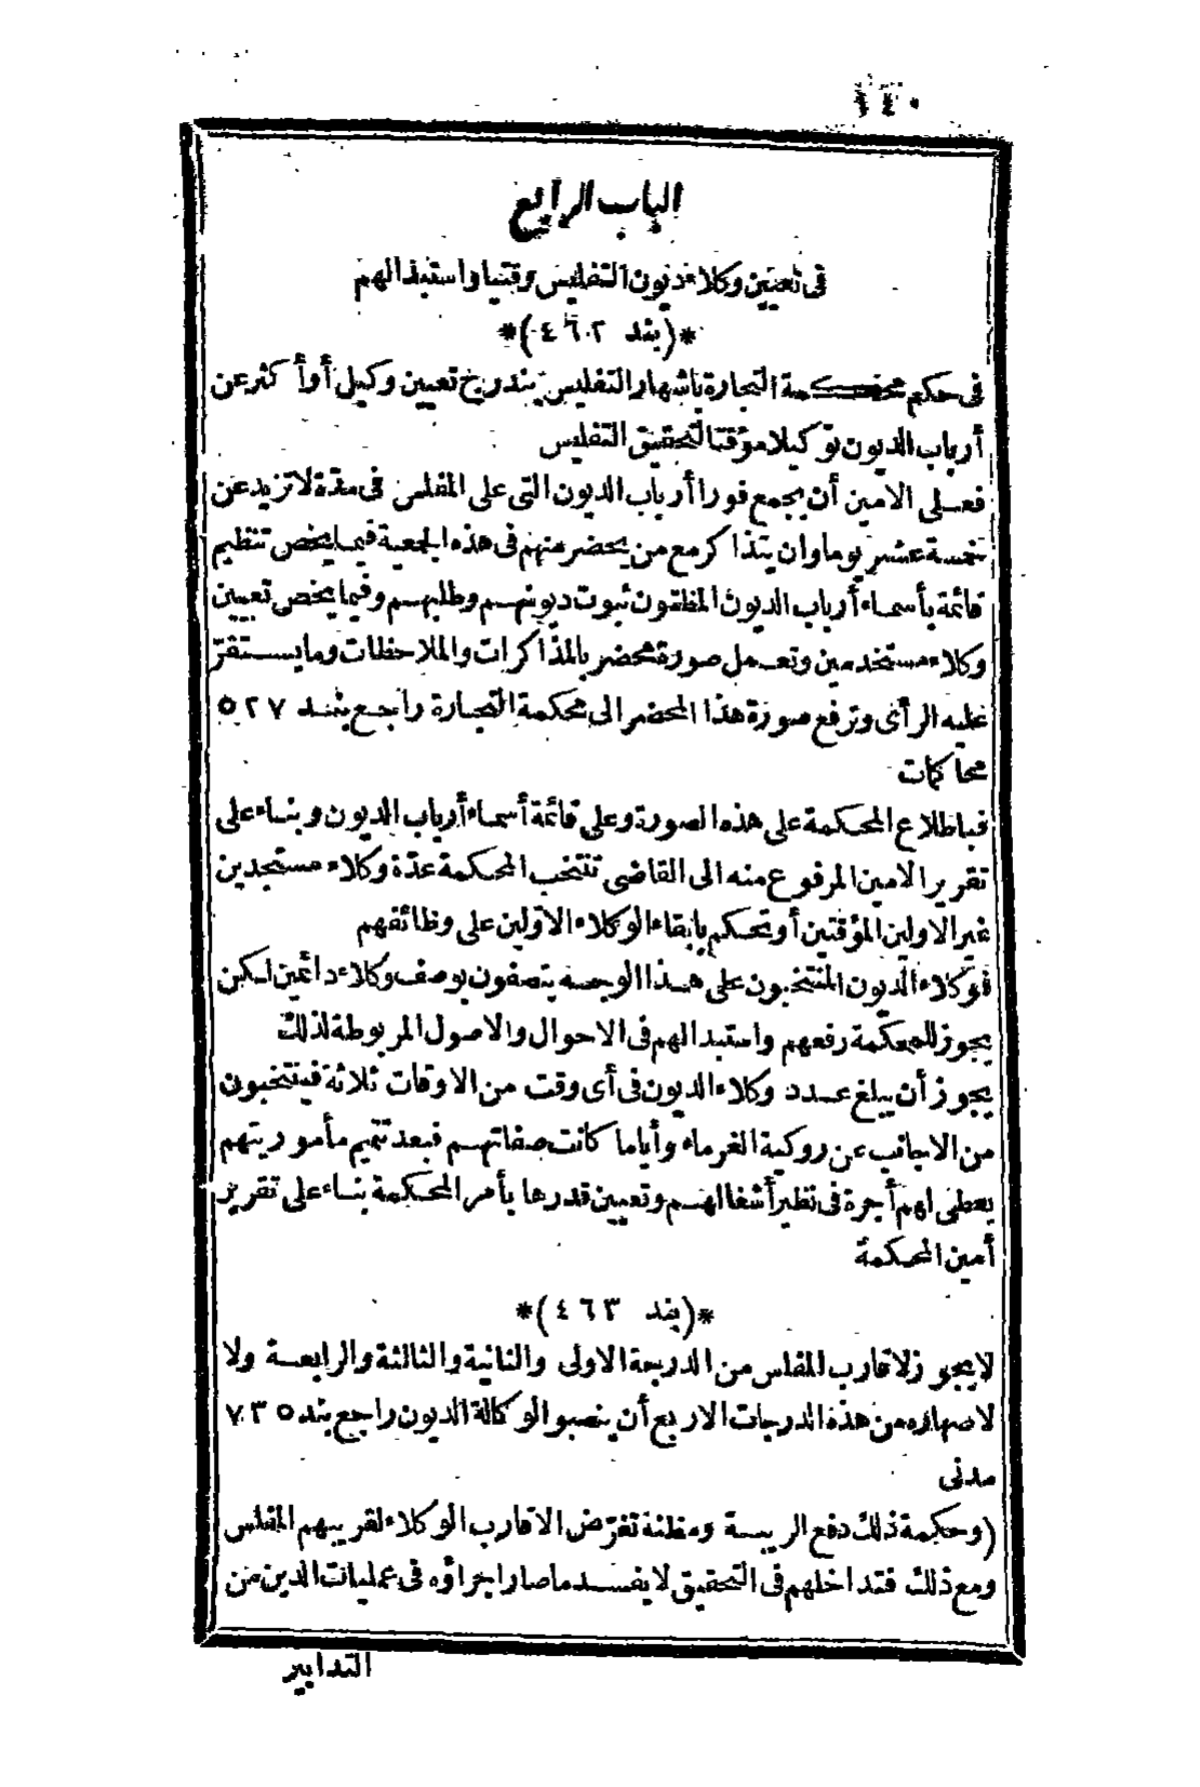 ١٤٠
الباب الرابع
فى تعيين وكلاء ديون التفليس وقتيا واستبدالهم
*(بند ٤٦٢)*
فى حكم محكمة التجارة باشهار التفليس يندرج تعيين وكيل أو أكثر عن
أرباب الديون توكيلا مؤقتا لتحقيق التفليس
فعلى الامين أن يجمع فورا أرباب الديون التى على المفلس فى مدّة لا تزيد عن
خمسة عشر يوما وان يتذاكر مع من يحضر منهم فى هذه الجمعية فيما يخص تنظيم
قائمة بأسماء أرباب الديون المظنون ثبوت ديونهم وطلبهم وفيما يخص تعيين
وكلاء مستخدمين وتعمل صورة محضر بالمذاكرات والملاحظات وما يستقرّ
عليه الرأى وترفع صورة هذا المحضر الى محكمة التجارة راجع بند ٥٢٧
محاكمات
فباطلاع المحكمة على هذه الصورة وعلى قائمة أسماء أرباب الديون وبناء على
تقرير الامين المرفوع منه الى القاضى تنتخب المحكمة عدّة وكلاء مستجدين
غير الاولين المؤقتين أو تحكم بابقاء الوكلاء الاوّلين على وظائفهم
فوكلاء الديون المنتخبون على هذا الوجه يتصفون بوصف وكلاء دائمين لكن
يجوز للمحكمة رفعهم واستبدالهم فى الاحوال والاصول المربوطة لذلك
يجوز أن يبلغ عدد وكلاء الديون فى أى وقت من الاوقات ثلاثة فينتخبون
من الاجانب عن روكية الغرماء وأياما كانت صفاتهم فبعد تتميم مأموريتهم
يعطى لهم أجرة فى نظير أشغالهم وتعيين قدرها بأمر المحكمة بناء على تقرير
أمين المحكمة
*(بند ٤٦٣)*
لا يجوز لاقارب المفلس من الدرجة الاولى والثانية والثالثة والرابعة ولا
لاصهاره من هذه الدرجات الاربع أن ينصبوا لوكالة الديون راجع بند ٧٣٥
مدنى
(وحكمة ذلك دفع الريبة ومظنة تغرّض الاقارب الوكلاء لقريبهم المفلس
ومع ذلك فتداخلهم فى التحقيق لا يفسد ما صار اجراؤه فى عمليات الدين من
التدابير